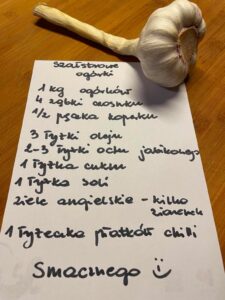 Szałstrowe
ogórki
1 kg ogórków
4 ząbki czosnku
1/2 pęczka koperku
3 łyżki oleju
2-3 łyżki octu jabłkowego
1 łyżka cukru
1 łyżka soli
ziele angielskie - kilka
ziarenek
1 łyżeczka płatków chili
Smacznego